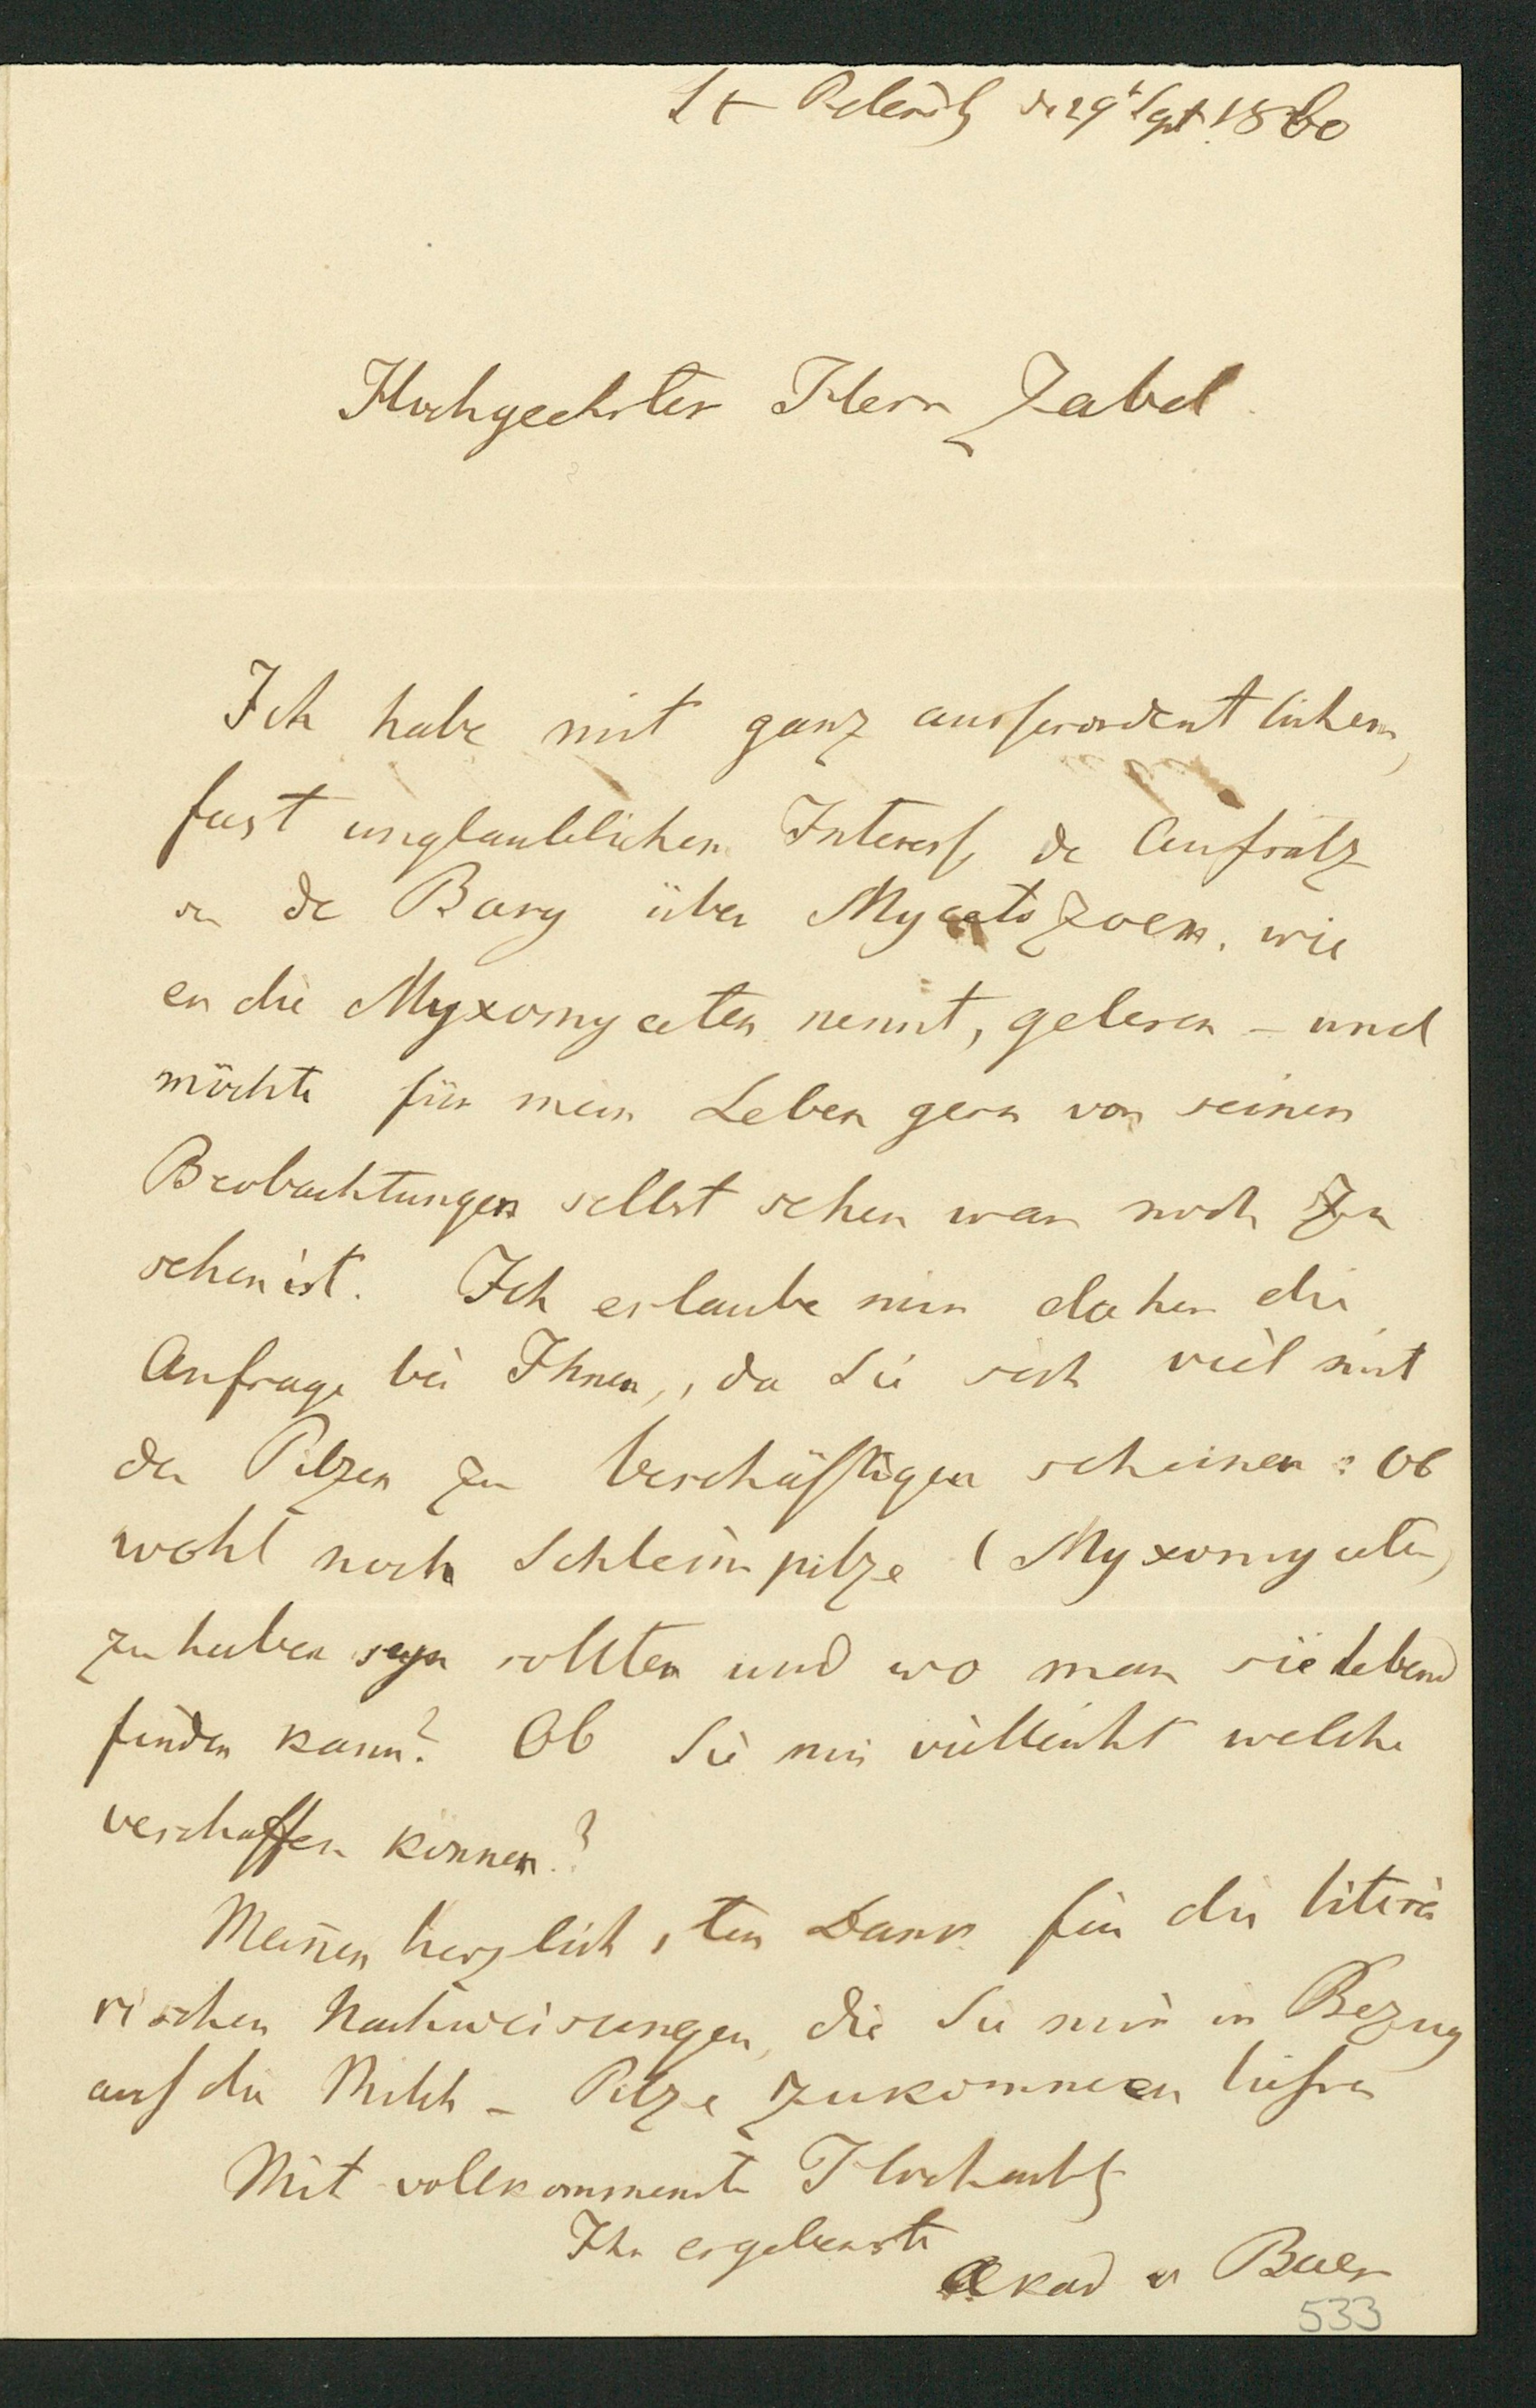 St Petersb d 29t Spt. 1860
Hochgeehrter Herr Zabel.
Ich habe mit ganz ausserordentlichem,
fast unglaublichem Interesse de Aufsatz
von de Bary über Mycetozoen, wie
er die Myxomyceten nennt, gelesen - und
möchte für mein Leben gern von seinen
Beobachtungen selbst sehen was noch zu
sehen ist. Ich erlaube mir daher die
Anfrage bei Ihnen, da Sie sich viel mit
den Pilzen zu beschäftigen scheinen: Ob
wohl noch Schleimpilze (Myxomyceten)
zu haben seyn sollten und wo man sie lebend
finden kann? Ob Sie mir vielleicht welche
verschaffen können?
Meinen herzlichsten Dank für die literä
rischen Nachweisungen, die Sie mir in Bezug
auf die Milch-Pilze zukommen liessen
Mit vollkommenster Hochachtg
Ihr ergebenster
Akad v Baer
533